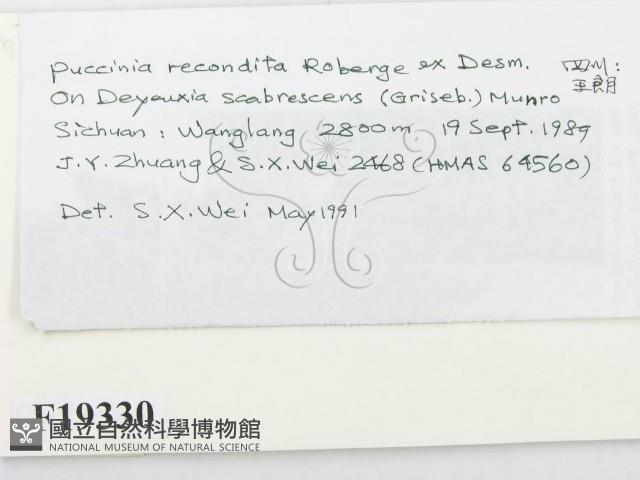 Puccinia recondita Roberge ex Desm. 四川:
王朗
On Deyeuxia scabrescens (Griseb.) Munro
Sichuan: Wanglang 2800m, 19 Sept. 1989
J.Y. Zhuang & S.X. Wei 2468 (HMAS 64560)
Det. S.X. Wei May 1991
F19330
國立自然科學博物館
NATIONAL MUSEUM OF NATURAL SCIENCE